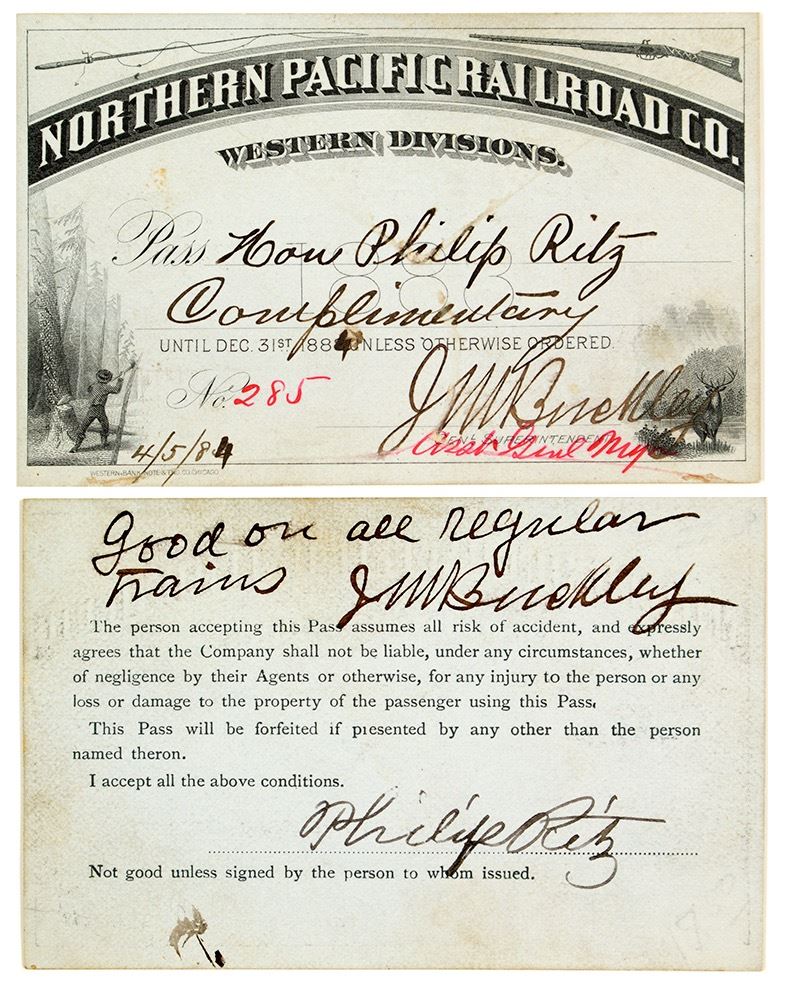 NORTHERN PACIFIC RAILROAD CO.
WESTERN DIVISIONS.
1883
Pass Hon Philip Ritz
Complimentary
UNTIL DEC. 31ST 1884 UNLESS OTHERWISE ORDERED.
No. 285
J M Buckley
GEN'L SUPERINTENDENT
Asst Genl Mgr
4/5/84
WESTERN BANK NOTE & ENG. CO. CHICAGO
Good on all regular
trains J M Buckley
The person accepting this Pass assumes all risk of accident, and expressly
agrees that the Company shall not be liable, under any circumstances, whether
of negligence by their Agents or otherwise, for any injury to the person or any
loss or damage to the property of the passenger using this Pass.
This Pass will be forfeited if presented by any other than the person
named theron.
I accept all the above conditions.
Philip Ritz
Not good unless signed by the person to whom issued.